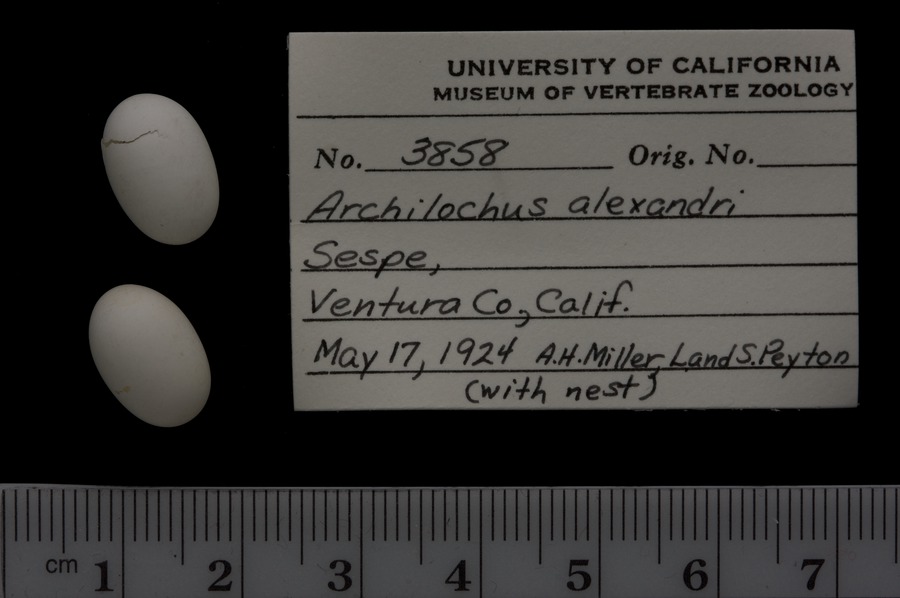 UNIVERSITY OF CALIFORNIA
MUSEUM OF VERTEBRATE ZOOLOGY
No. 3858 Orig. No.
Archilochus alexandri
Sespe,
Ventura Co, Calif.
May 17, 1924 A.H. Miller, L and S. Peyton
(with nest)
cm 1 2 3 4 5 6 7